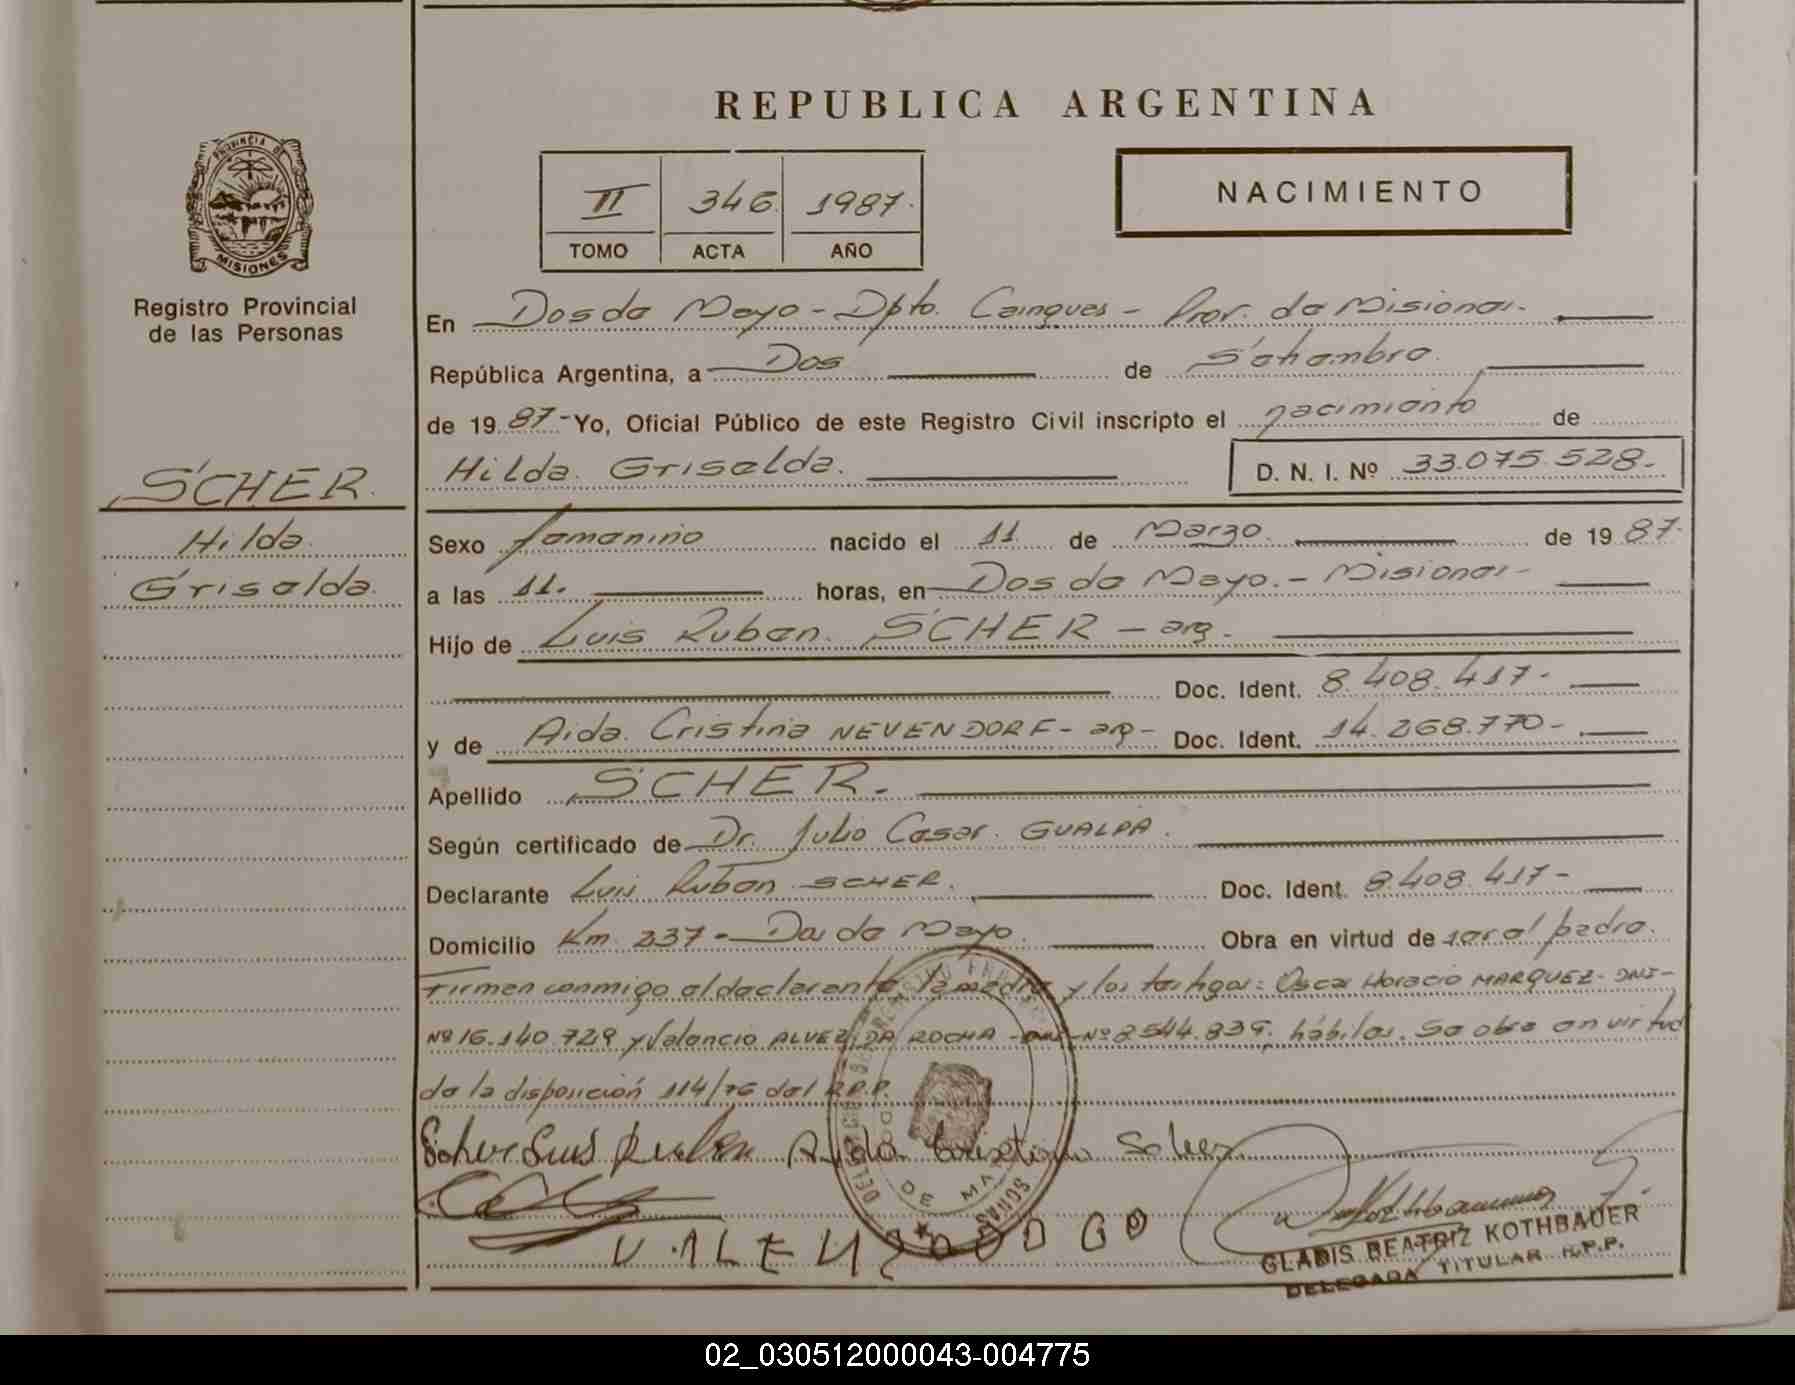 REPUBLICA ARGENTINA
PROVINCIA DE
MISIONES
Registro Provincial
de las Personas
II 346. 1987.
TOMO ACTA AÑO
NACIMIENTO
En Dos de Mayo - Dpto. Cainguas - Prov. de Misiones.
República Argentina, a Dos de Setiembre.
de 1987- Yo, Oficial Público de este Registro Civil inscripto el nacimiento de
Hilda. Griselda. D. N. I. Nº 33.075.528.-
SCHER.
Hilda.
Griselda.
Sexo femenino nacido el 11 de Marzo. de 1987.
a las 11. horas, en Dos de Mayo. - Misiones -
Hijo de Luis Ruben. SCHER - arg.
Doc. Ident. 8.408.417.-
y de Aida. Cristina NEVENDORF - arg - Doc. Ident. 14.268.770-
Apellido SCHER.
Según certificado de Dr. Julio Cesar. GUALPA.
Declarante Luis Ruben SCHER. Doc. Ident. 8.408.417-
Domicilio Km 237 - Dos de Mayo. Obra en virtud de ser el padre.
Firman conmigo el declarante la madre y los testigos: Oscar Horacio MARQUEZ - DNI -
Nº 16.140.729 y Valencio ALVEZ DA ROCHA - DNI - Nº 2544.839. hábiles. Se obra en virtud
de la disposición 114/76 del R.P.P.
Scher Luis Ruben Aida Cristina Scher
GLADIS BEATRIZ KOTHBAUER
DELEGADA TITULAR R.P.P.
02_030512000043-004775